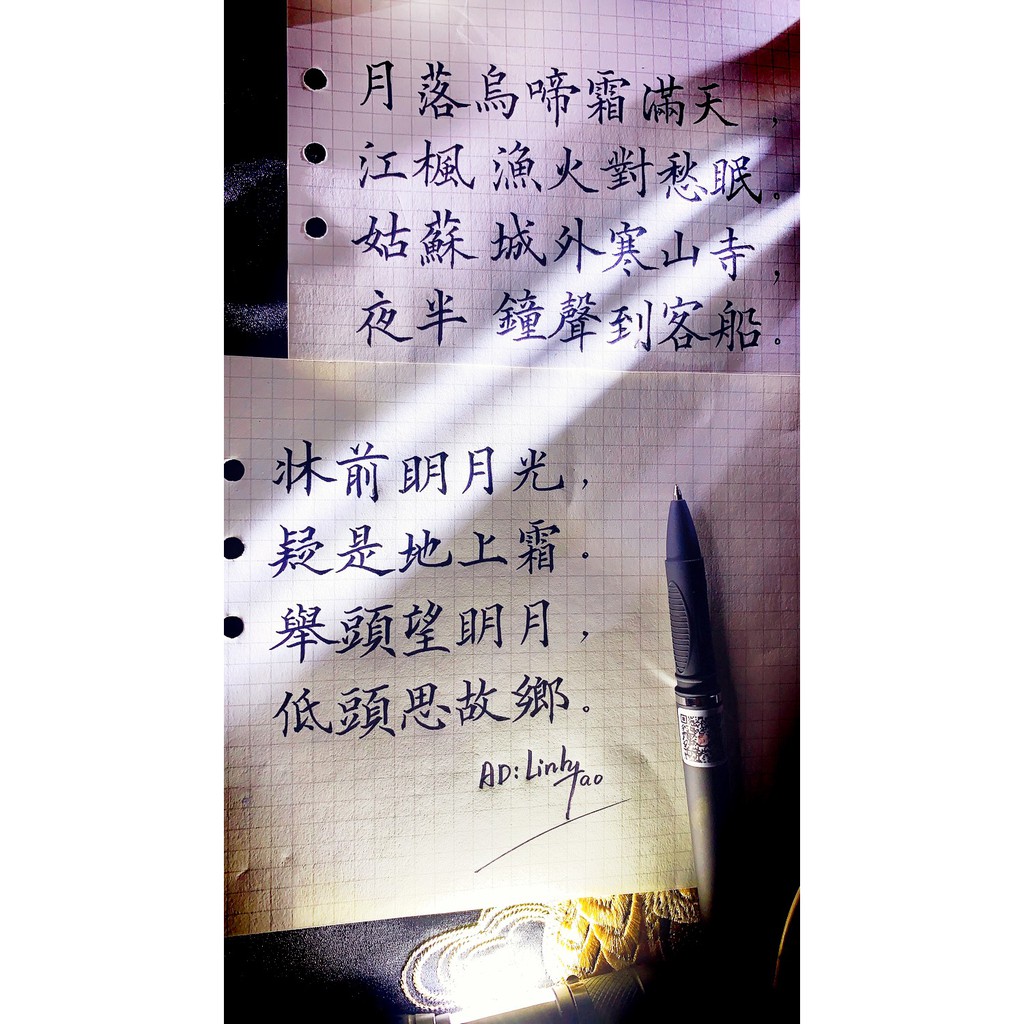 月落烏啼霜滿天，
江楓漁火對愁眠。
姑蘇城外寒山寺，
夜半鐘聲到客船。
牀前明月光，
疑是地上霜．
舉頭望明月，
低頭思故鄉。
AD: Linh Tao